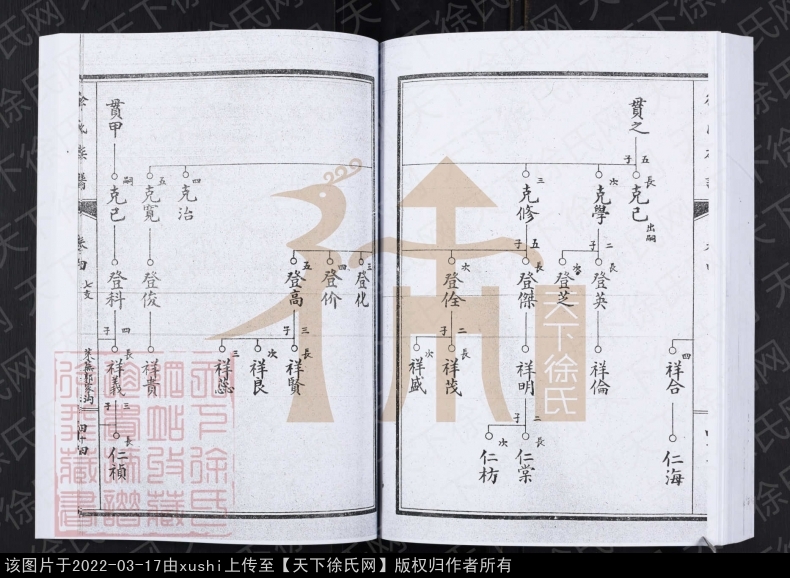 貫之
五子
長 克己 出嗣
次 克學
三 克修
二子
長 登英
次 登芝
五子
長 登傑
次 登佺
四 祥合
祥倫
祥明
二子
長 祥茂
次 祥盛
仁海
二子
長 仁棠
次 仁枋
四 克治
五 克寬
貫甲
嗣 克己
三 登化
四 登价
五 登高
登俊
登科
三子
長 祥賢
次 祥良
三 祥蕊
祥貴
四子
長 祥義
三子
長 仁禎
卷四
七支
四十四
天下徐氏
该图片于2022-03-17由xushi上传至【天下徐氏网】版权归作者所有